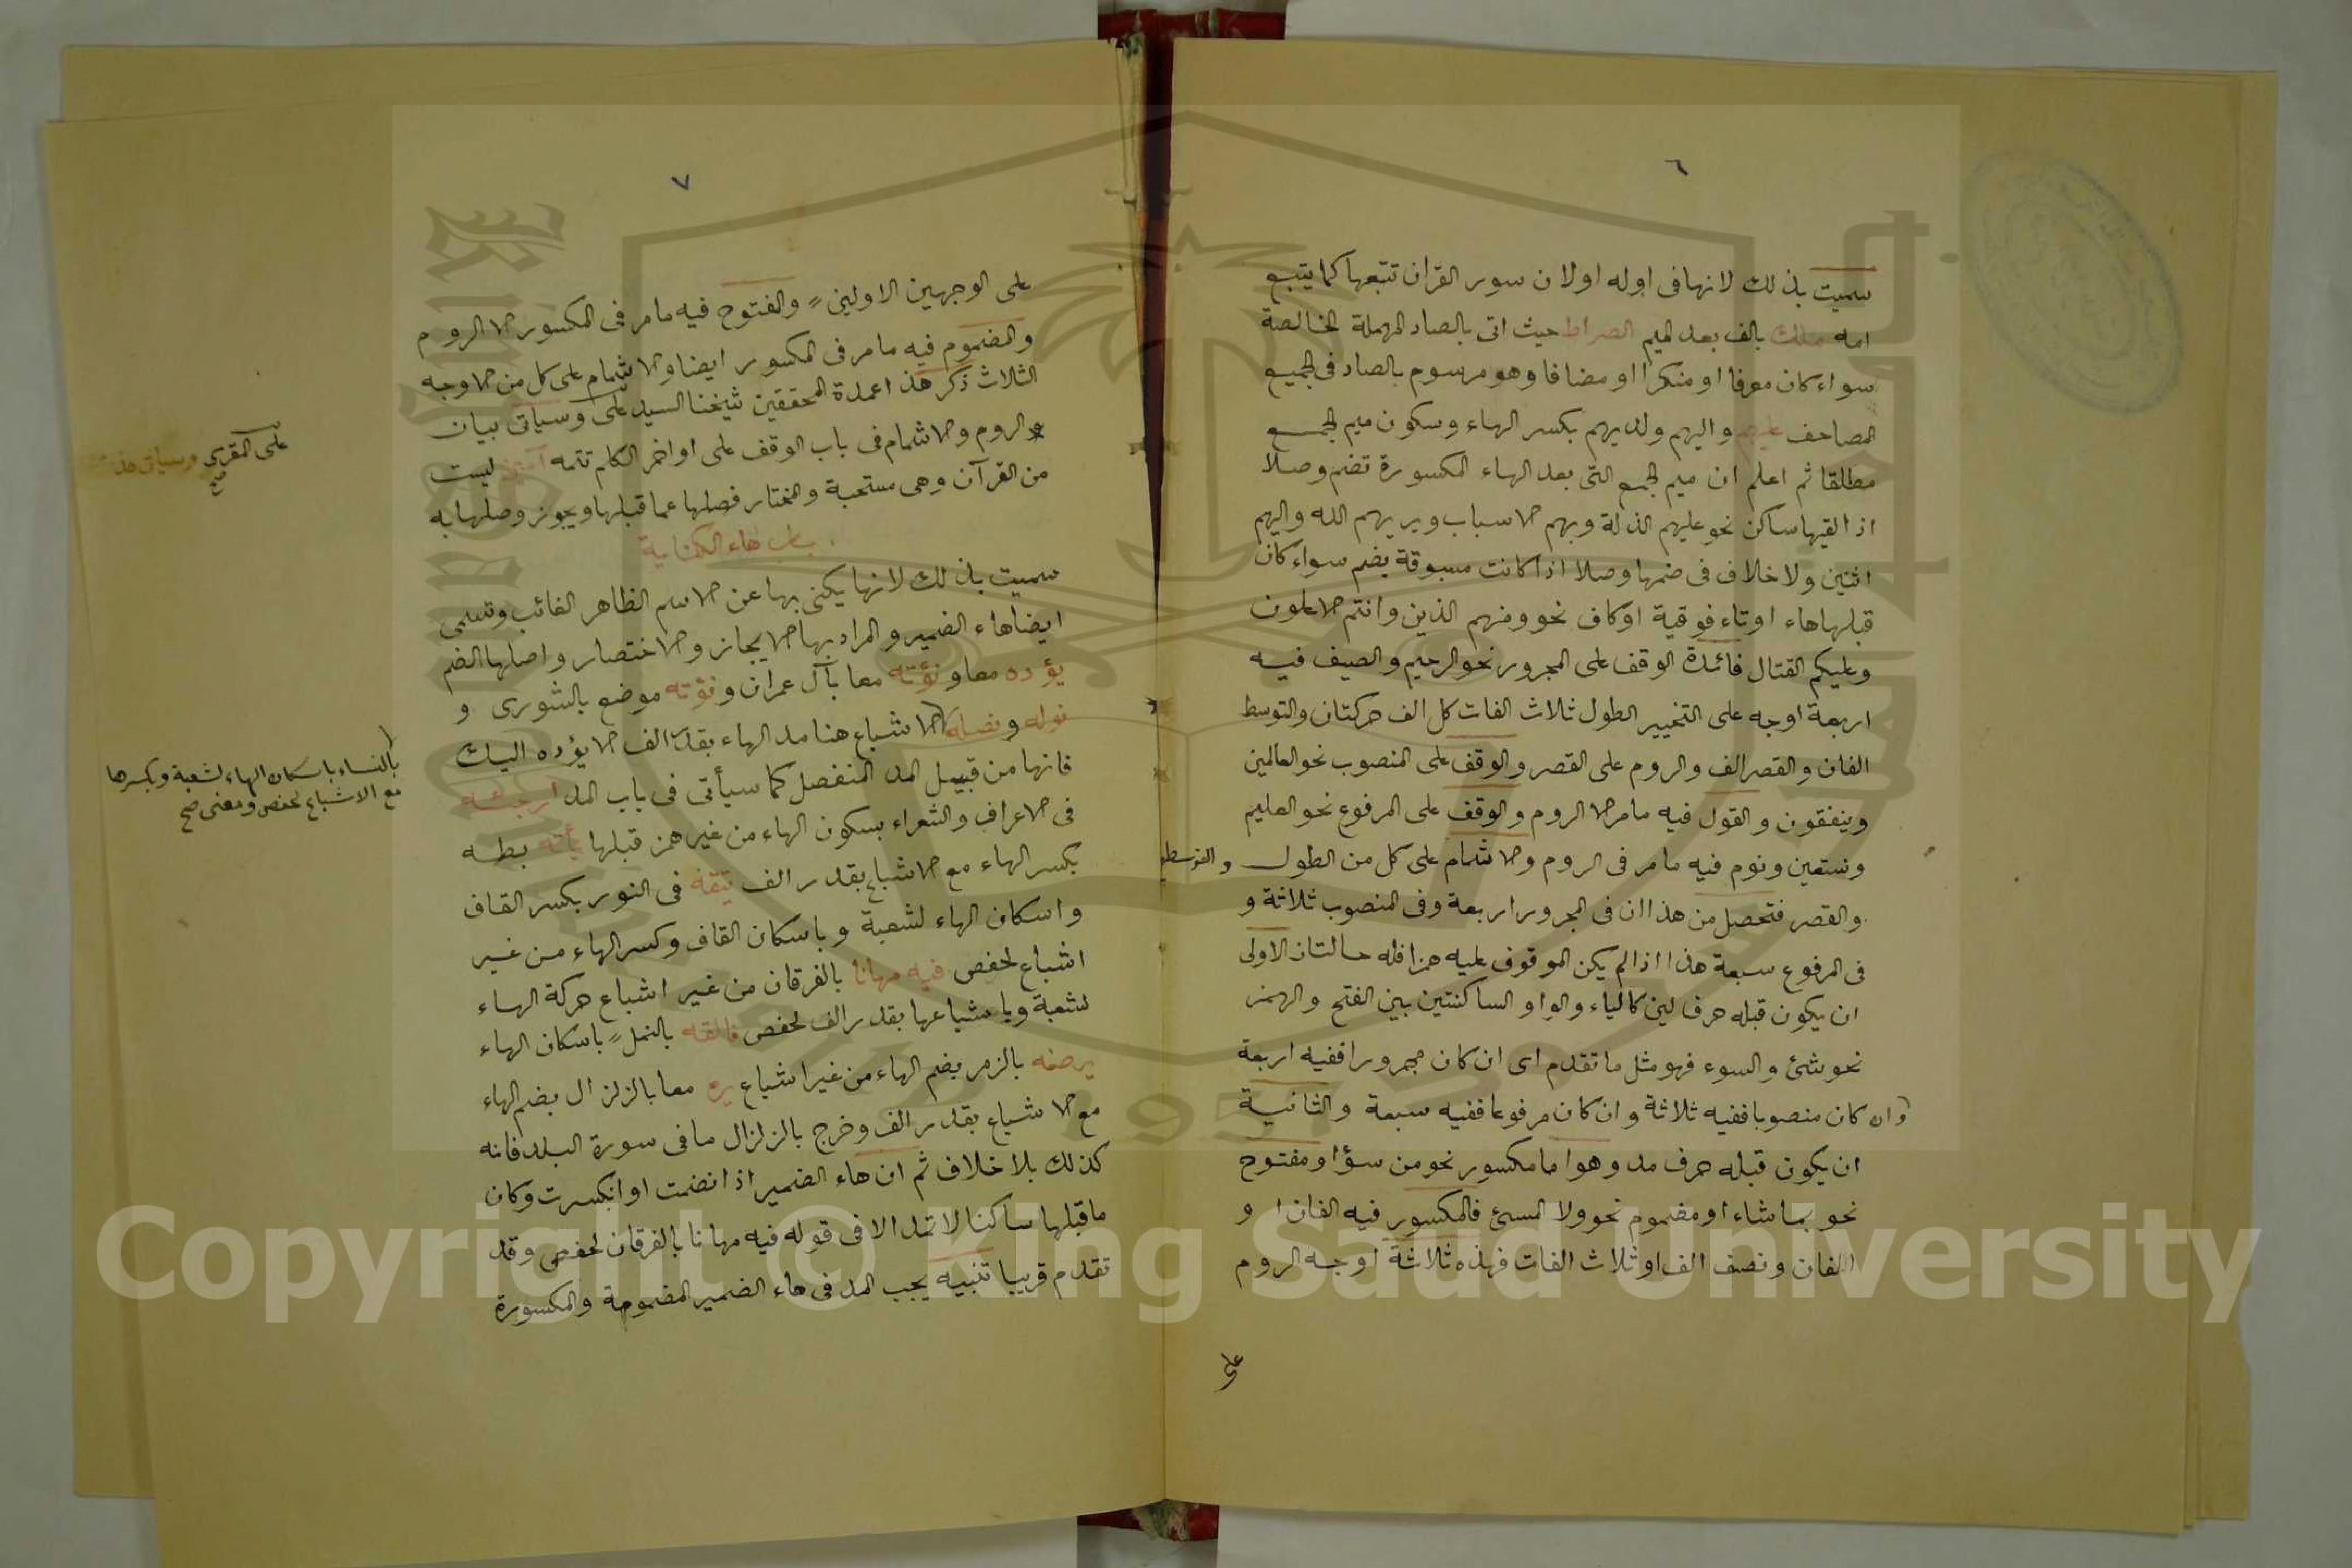 ٦
سميت بذلك لانها فى اوله اولان سور القران تتبعها كما يتبع
امه ملك بالف بعد الميم الصراط حيث اتى بالصاد المهملة الخالصة
سواء كان معرفا او منكرا او مضافا وهو مرسوم بالصاد فى الجميع
المصاحف عليهم واليهم ولديهم بكسر الهاء وسكون ميم الجمع
مطلقا ثم اعلم ان ميم الجمع التى بعد الهاء المكسورة تضم وصلا
اذا لقيها ساكن نحو عليهم الذلة وبهم الاسباب ويريهم الله واليهم
اثنين ولا خلاف فى ضمها وصلا اذا كانت مسبوقة بضم سواء كان
قبلها هاء او تاء فوقية او كاف نحو ومنهم الذين وانتم الاعلون
وعليكم القتال فائدة الوقف على المجرور نحو الرحيم والصيف فيه
اربعة اوجه على التخيير الطول ثلاث الفات كل الف حركتان والتوسط
الفان والقصر الف والروم على القصر والوقف على المنصوب نحو العالمين
وينفقون والقول فيه مامر الا الروم والوقف على المرفوع نحو العليم
ونستعين ونوم فيه ما مر فى الروم والاشمام على كل من الطول والتوسط
والقصر فتحصل من هذا ان فى المجرور اربعة وفى المنصوب ثلاثة و
فى المرفوع سبعة هذا اذا لم يكن الموقوف عليه همزا فله حالتان الاولى
ان يكون قبله حرف لين كالياء والواو الساكنتين بين الفتح والهمز
نحو شئ والسوء فهو مثل ما تقدم اى ان كان مجرورا ففيه اربعة
وان كان منصوبا ففيه ثلاثة وان كان مرفوعا ففيه سبعة والثانية
ان يكون قبله حرف مد وهو اما مكسور نحو من سؤا ومفتوح
نحو بما شاء او مضموم نحو ولا المسئ فالمكسور فيه الفان او
الفان ونصف الف او ثلاث الفات فهذه ثلاثة اوجه الروم
على
٧
على الوجهين الاولين والمفتوح فيه مامر فى المكسور الا الروم
والمضموم فيه ما مر فى المكسور ايضا والاشمام على كل من الاوجه
الثلاث ذكر هذا عمدة المحققين شيخنا السيد على وسياتى بيان
الروم والاشمام فى باب الوقف على اواخر الكلم تتمه آمين ليست
من القرآن وهى مستحبة والمختار فصلها عما قبلها ويجوز وصلها به
باب هاء الكناية
سميت بذلك لانها يكنى بها عن الاسم الظاهر الغائب وتسمى
ايضا هاء الضمير والمراد بها الايجاز والاختصار واصلها الضم
يؤده معا ونؤته معا بآل عمران ونؤته موضع بالشورى و
نوله ونصله الاشباع هنا مد الهاء بقدر الف الا يؤده اليك
فانها من قبيل المد المنفصل كما سيأتى فى باب المد ارجئه
فى الاعراف والشعراء بسكون الهاء من غير همز قبلها يأته بطه
بكسر الهاء مع الاشباع بقدر الف يتقه فى النور بكسر القاف
واسكان الهاء لشعبة وباسكان القاف وكسر الهاء من غير
اشباع لحفص فيه مهانا بالفرقان من غير اشباع حركة الهاء
لشعبة وباشباعها بقدر الف لحفص فالقه بالنمل باسكان الهاء
يرضه بالزمر بضم الهاء من غير اشباع يره معا بالزلزال بضم الهاء
مع الاشباع بقدر الف وخرج بالزلزال ما فى سورة البلد فانه
كذلك بلا خلاف ثم ان هاء الضمير اذا انضمت او انكسرت وكان
ما قبلها ساكنا لا تمد الا فى قوله فيه مهانا بالفرقان لحفص وقد
تقدم قريبا تنبيه يجب المد فى هاء الضمير المضمومة والمكسورة
على المقرى وسياتى هذا
صح
بالنساء باسكان الهاء لشعبة وبكسرها
مع الاشباع لحفص ومعنى صح
Copyright © King Saud University
1957